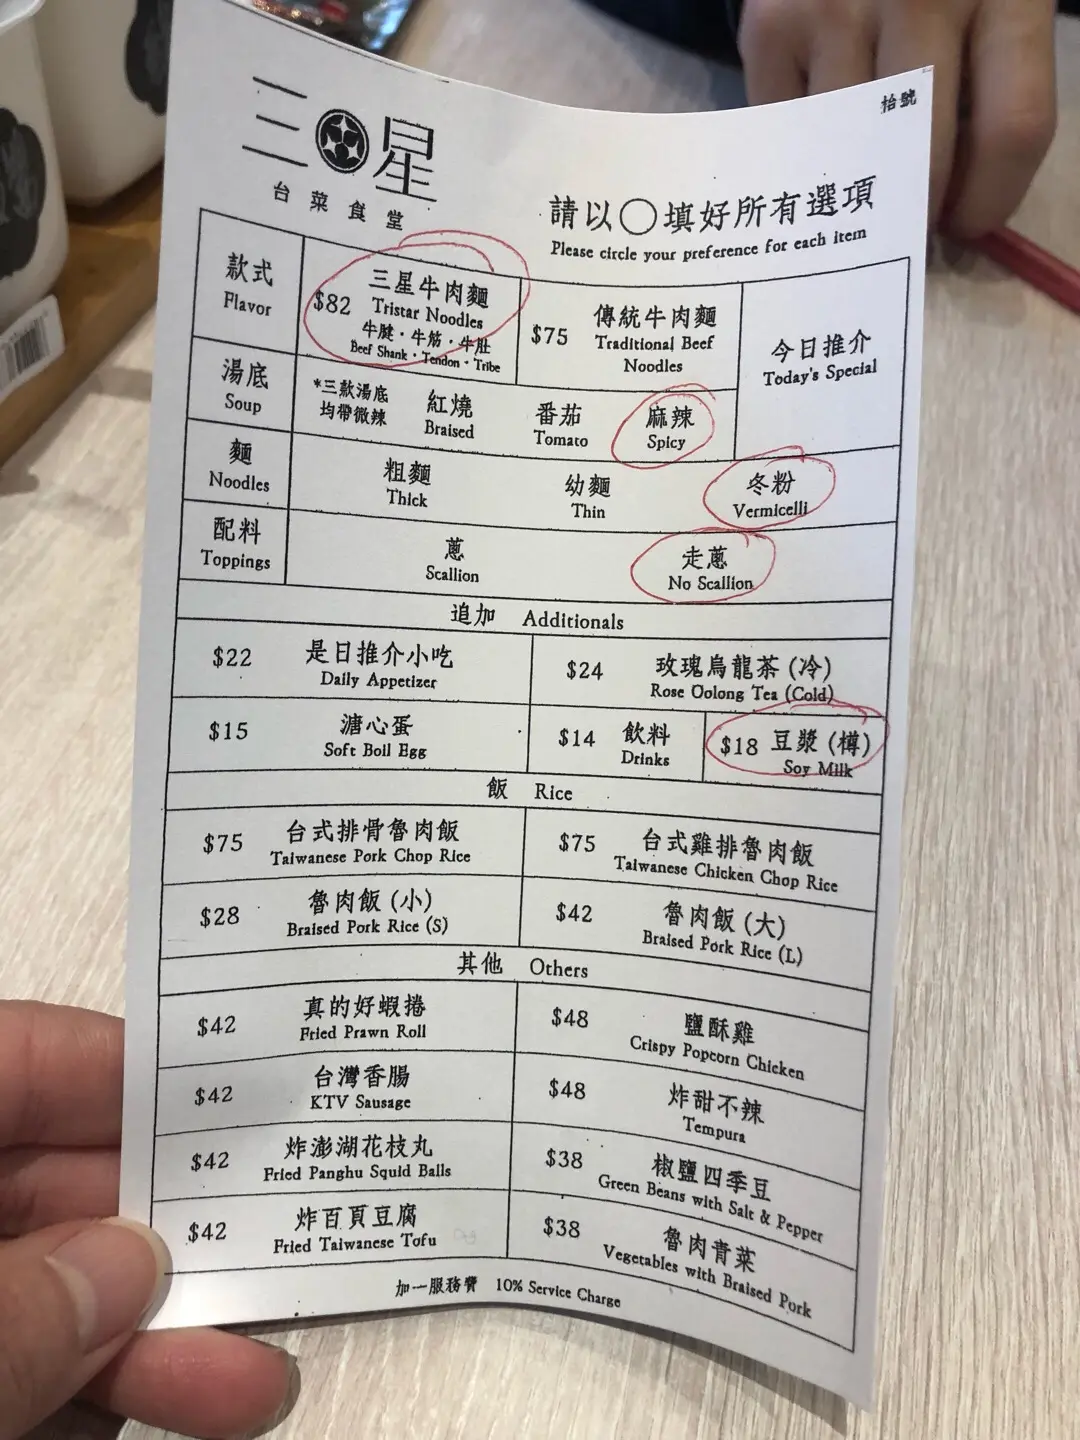 三星
台菜食堂
枱號
請以○填好所有選項
Please circle your preference for each item
款式
Flavor
$82
三星牛肉麵
Tristar Noodles
牛腱・牛筋・牛肚
Beef Shank・Tendon・Tribe
$75
傳統牛肉麵
Traditional Beef
Noodles
今日推介
Today's Special
湯底
Soup
*三款湯底
均帶微辣
紅燒
Braised
番茄
Tomato
麻辣
Spicy
麵
Noodles
粗麵
Thick
幼麵
Thin
冬粉
Vermicelli
配料
Toppings
蔥
Scallion
走蔥
No Scallion
追加 Additionals
$22
是日推介小吃
Daily Appetizer
$24
玫瑰烏龍茶(冷)
Rose Oolong Tea (Cold)
$15
溏心蛋
Soft Boil Egg
$14
飲料
Drinks
$18
豆漿(樽)
Soy Milk
飯 Rice
$75
台式排骨魯肉飯
Taiwanese Pork Chop Rice
$75
台式雞排魯肉飯
Taiwanese Chicken Chop Rice
$28
魯肉飯(小)
Braised Pork Rice (S)
$42
魯肉飯(大)
Braised Pork Rice (L)
其他 Others
$42
真的好蝦捲
Fried Prawn Roll
$48
鹽酥雞
Crispy Popcorn Chicken
$42
台灣香腸
KTV Sausage
$48
炸甜不辣
Tempura
$42
炸澎湖花枝丸
Fried Panghu Squid Balls
$38
椒鹽四季豆
Green Beans with Salt & Pepper
$42
炸百頁豆腐
Fried Taiwanese Tofu
$38
魯肉青菜
Vegetables with Braised Pork
加一服務費 10% Service Charge